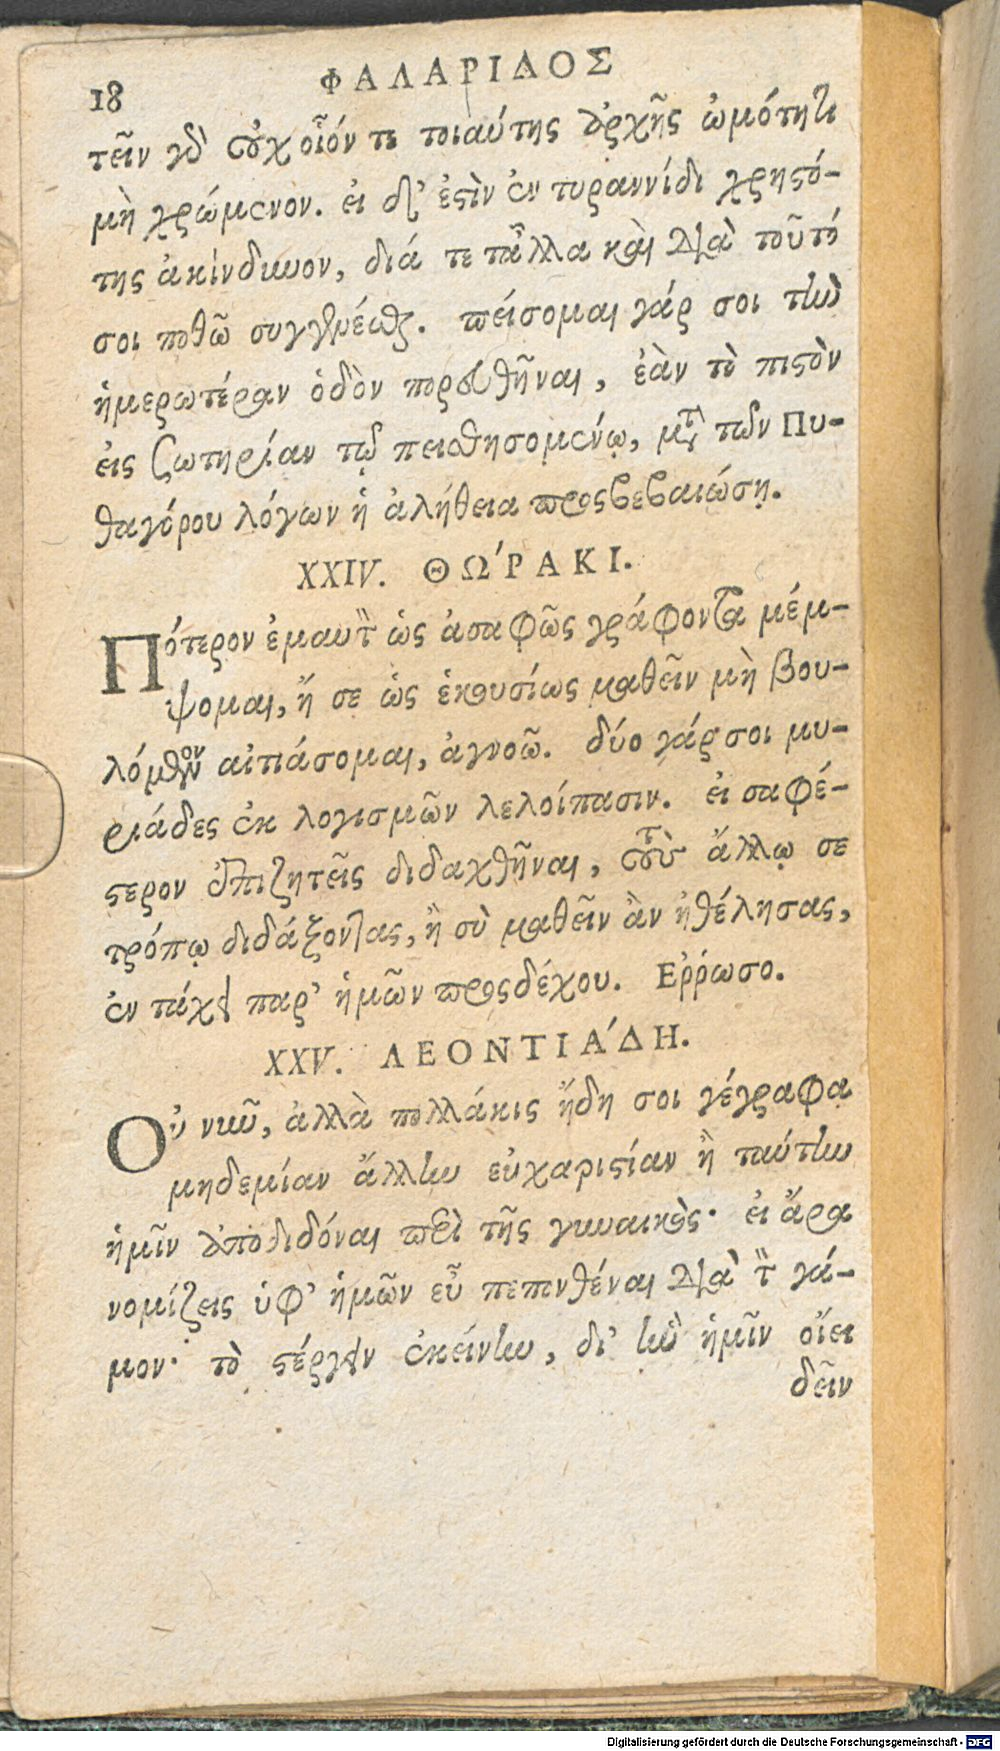 18 ΦΑΛΑΡΙΔΟΣ
τεῖν γὸ οὐχ οἷόν τε τοιαύτης ἀρχῆς ὠμότητι
μὴ χρώμενον. εἰ δ' ἐστὶν ἐν τυραννίδι χρηστό-
της ἀκίνδυνον, διά τε τἄλλα καὶ διὰ τοῦτό
σοι ποθῶ συγγενέσθαι. πείσομαι γάρ σοι τὴν
ἡμερωτέραν ὁδὸν πορευθῆναι, ἐὰν τὸ πιστὸν
εἰς σωτηρίαν τῷ πεισθησομένῳ, μετὰ τῶν Πυ-
θαγόρου λόγων ἡ ἀλήθεια προσβεβαιώσῃ.
XXIV. ΘΩ'ΡΑΚΙ.
Πότερον ἐμαυτὸν ὡς ἀσαφῶς γράφοντα μέμ-
ψομαι, ἤ σε ὡς ἑκουσίως μαθεῖν μὴ βου-
λόμενον αἰτιάσομαι, ἀγνοῶ. δύο γάρ σοι μυ-
ριάδες ἐκ λογισμῶν λελοίπασιν. εἰ σαφέ-
στερον ἐπιζητεῖς διδαχθῆναι, τοὺς ἄλλῳ σε
τρόπῳ διδάξοντας, ἢ σὺ μαθεῖν ἂν ἠθέλησας,
ἐν τάχει παρ' ἡμῶν προσδέχου. Ἐῤῥωσο.
XXV. ΛΕΟΝΤΙΑ'ΔΗ.
Οὐ νῦν, ἀλλὰ πολλάκις ἤδη σοι γέγραφα
μηδεμίαν ἄλλην εὐχαριστίαν ἢ ταύτην
ἡμῖν ἀποδιδόναι περὶ τῆς γυναικός· εἰ ἄρα
νομίζεις ὑφ' ἡμῶν εὖ πεπονθέναι διὰ τὸν γά-
μον· τὸ στέργειν ἐκείνην, δι' ἣν ἡμῖν οἴει
δεῖν
Digitalisierung gefördert durch die Deutsche Forschungsgemeinschaft - DFG